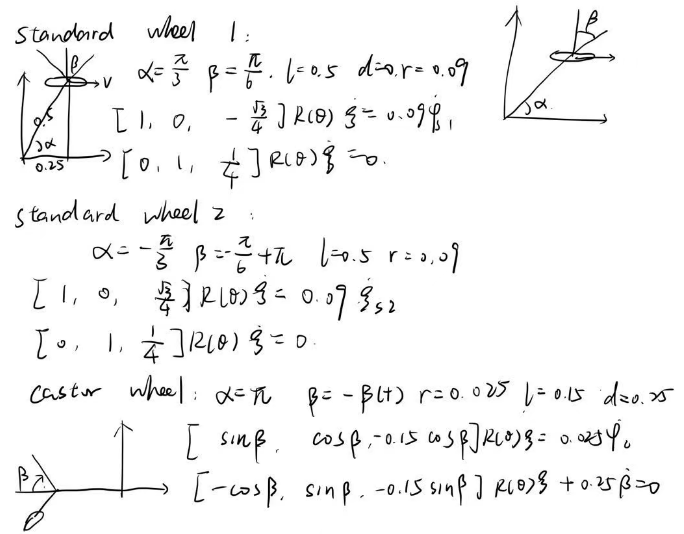 standard wheel 1:
α=π/3 β=π/6. l=0.5 d=0. r=0.09
[1, 0, -√3/4] R(θ) ξ̇ = 0.09 φ̇₁
[0, 1, 1/4] R(θ) ξ̇ = 0.
β
v
0.5
α
0.25
β
α
standard wheel 2:
α=-π/3 β=-π/6+π l=0.5 r=0.09
[1, 0, √3/4] R(θ) ξ̇ = 0.09 ξ̇s2
[0, 1, 1/4] R(θ) ξ̇ = 0.
castor wheel: α=π β=-β(t) r=0.025 l=0.15 d=0.25
[sinβ, cosβ, -0.15 cosβ] R(θ) ξ̇ = 0.025 φ̇
[-cosβ, sinβ, -0.15 sinβ] R(θ) ξ̇ + 0.25 β̇ = 0
β